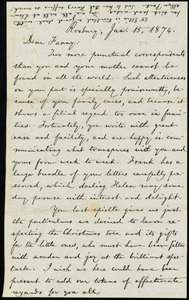 Roxbury, Jan. 15, 1874.
Dear Fanny:
Two more punctual correspondents
than you and your mother cannot be
found in the wide world. Such attentiveness
on your part is specially praiseworthy, be-
cause of your family cares, and because
shows a filial regard too rare in fami-
lies. Fortunately, you write with great
ease and facility, and are happy in com-
municating and transpires with you and
yours from week to week. Frank has a
large bundle of your letters carefully pre-
served, which darling Helen may some
day, peruse with interest and delight.
Your last epistle gave us just
the particulars we desired to learn re-
specting the Christmas tree and its gifts
for the little ones, who must have been filled
with wonder and joy at the brilliant spec-
tacle. I wish we here could have been
present to add our tokens of affectionate
regards for you all.